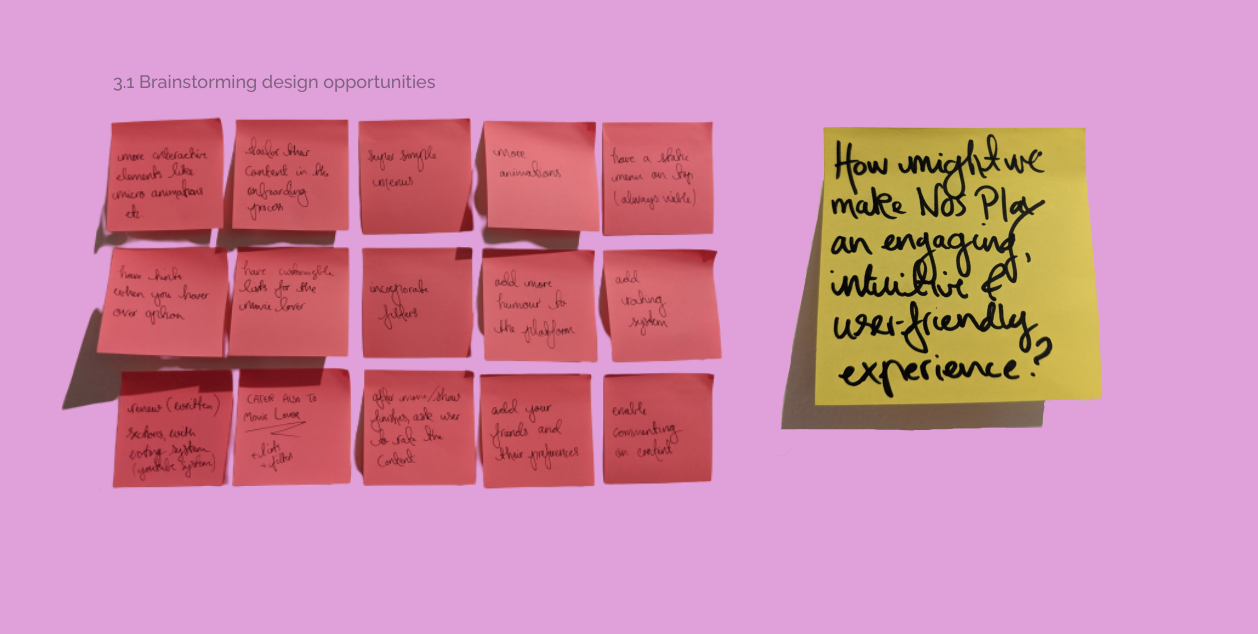 3.1 Brainstorming design opportunities
more interactive
elements like
micro animations
etc
their
content in the
onboarding
process
super simple
menus
more
animations
have a static
menu on top
(always visible)
have hints
when you hover
over option
have customizable
lists for the
movie lover
incorporate
filters
add more
humour to
the platform
add
rating
system
review (written)
sections, with
voting system
(youtube system)
CATER ALSO TO
Movie Lover
+ lists
+ filters
after movie/show
finishes, ask user
to rate the
content
add your
friends and
their preferences
enable
commenting
on content
How might we
make NOS Play
an engaging,
intuitive &
user-friendly
experience?